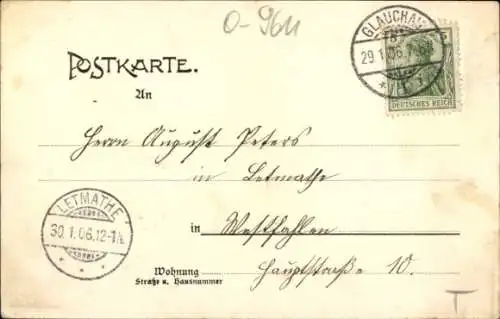 O-9611
GLAUCHAU
29.1.06
DEUTSCHES REICH
POSTKARTE.
An
Herrn August Peters
in Letmathe
in Westfahlen
LETMATHE
30.1.06.12-1
Wohnung
Straße u. Hausnummer
Hauptstraße 10.
T